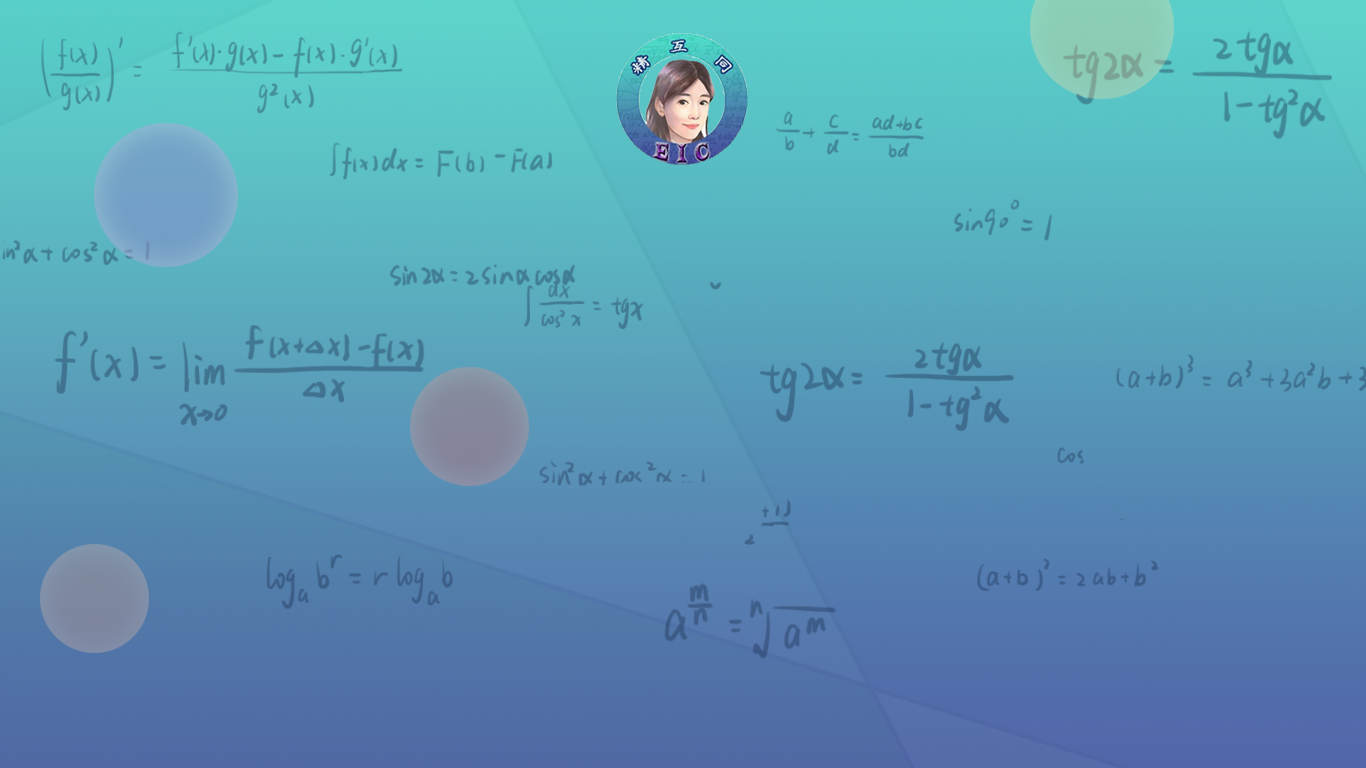 (f(x)/g(x))' = f'(x)·g(x) − f(x)·g'(x) / g²(x)
精 互 同
EIC
tg2α = 2tgα / 1−tg²α
a/b + c/d = ad+bc / bd
∫f(x)dx = F(b) − F(a)
sin90° = 1
in²α + cos²α = 1
sin2α = 2sinαcosα
∫ dx / cos²x = tgx
f'(x) = lim x→0 f(x+Δx)−f(x) / Δx
tg2α = 2tgα / 1−tg²α
(a+b)³ = a³ + 3a²b + 3
cos
sin²α + cos²α = 1
+1)
2
logₐ bʳ = r logₐ b
(a+b)² = 2ab + b²
a^(m/n) = ⁿ√a^m